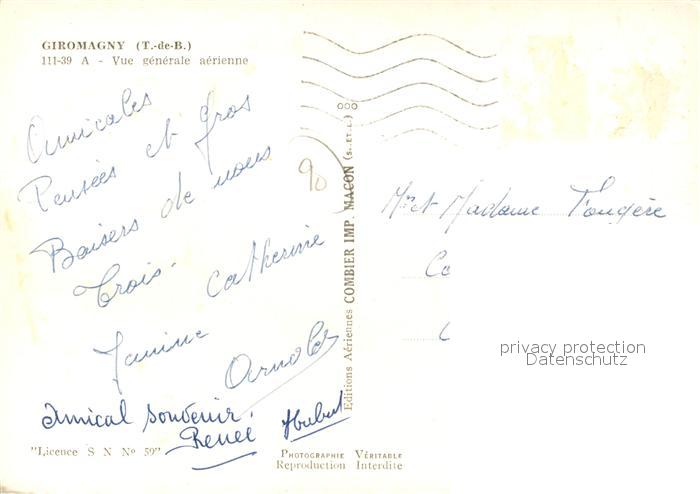 GIROMAGNY (T.-de-B.)
111-39 A - Vue générale aérienne
Amicales
Pensées et gros
Baisers de nous
Trois.
Catherine
Janine
Arnold
Amical souvenir.
Renée Hubert
"Licence S N Nº 59"
90
Editions Aériennes COMBIER IMP. MACON (S.-ET-L.)
Mr et Madame Fougère
Co
privacy protection
Datenschutz
PHOTOGRAPHIE VÉRITABLE
Reproduction Interdite